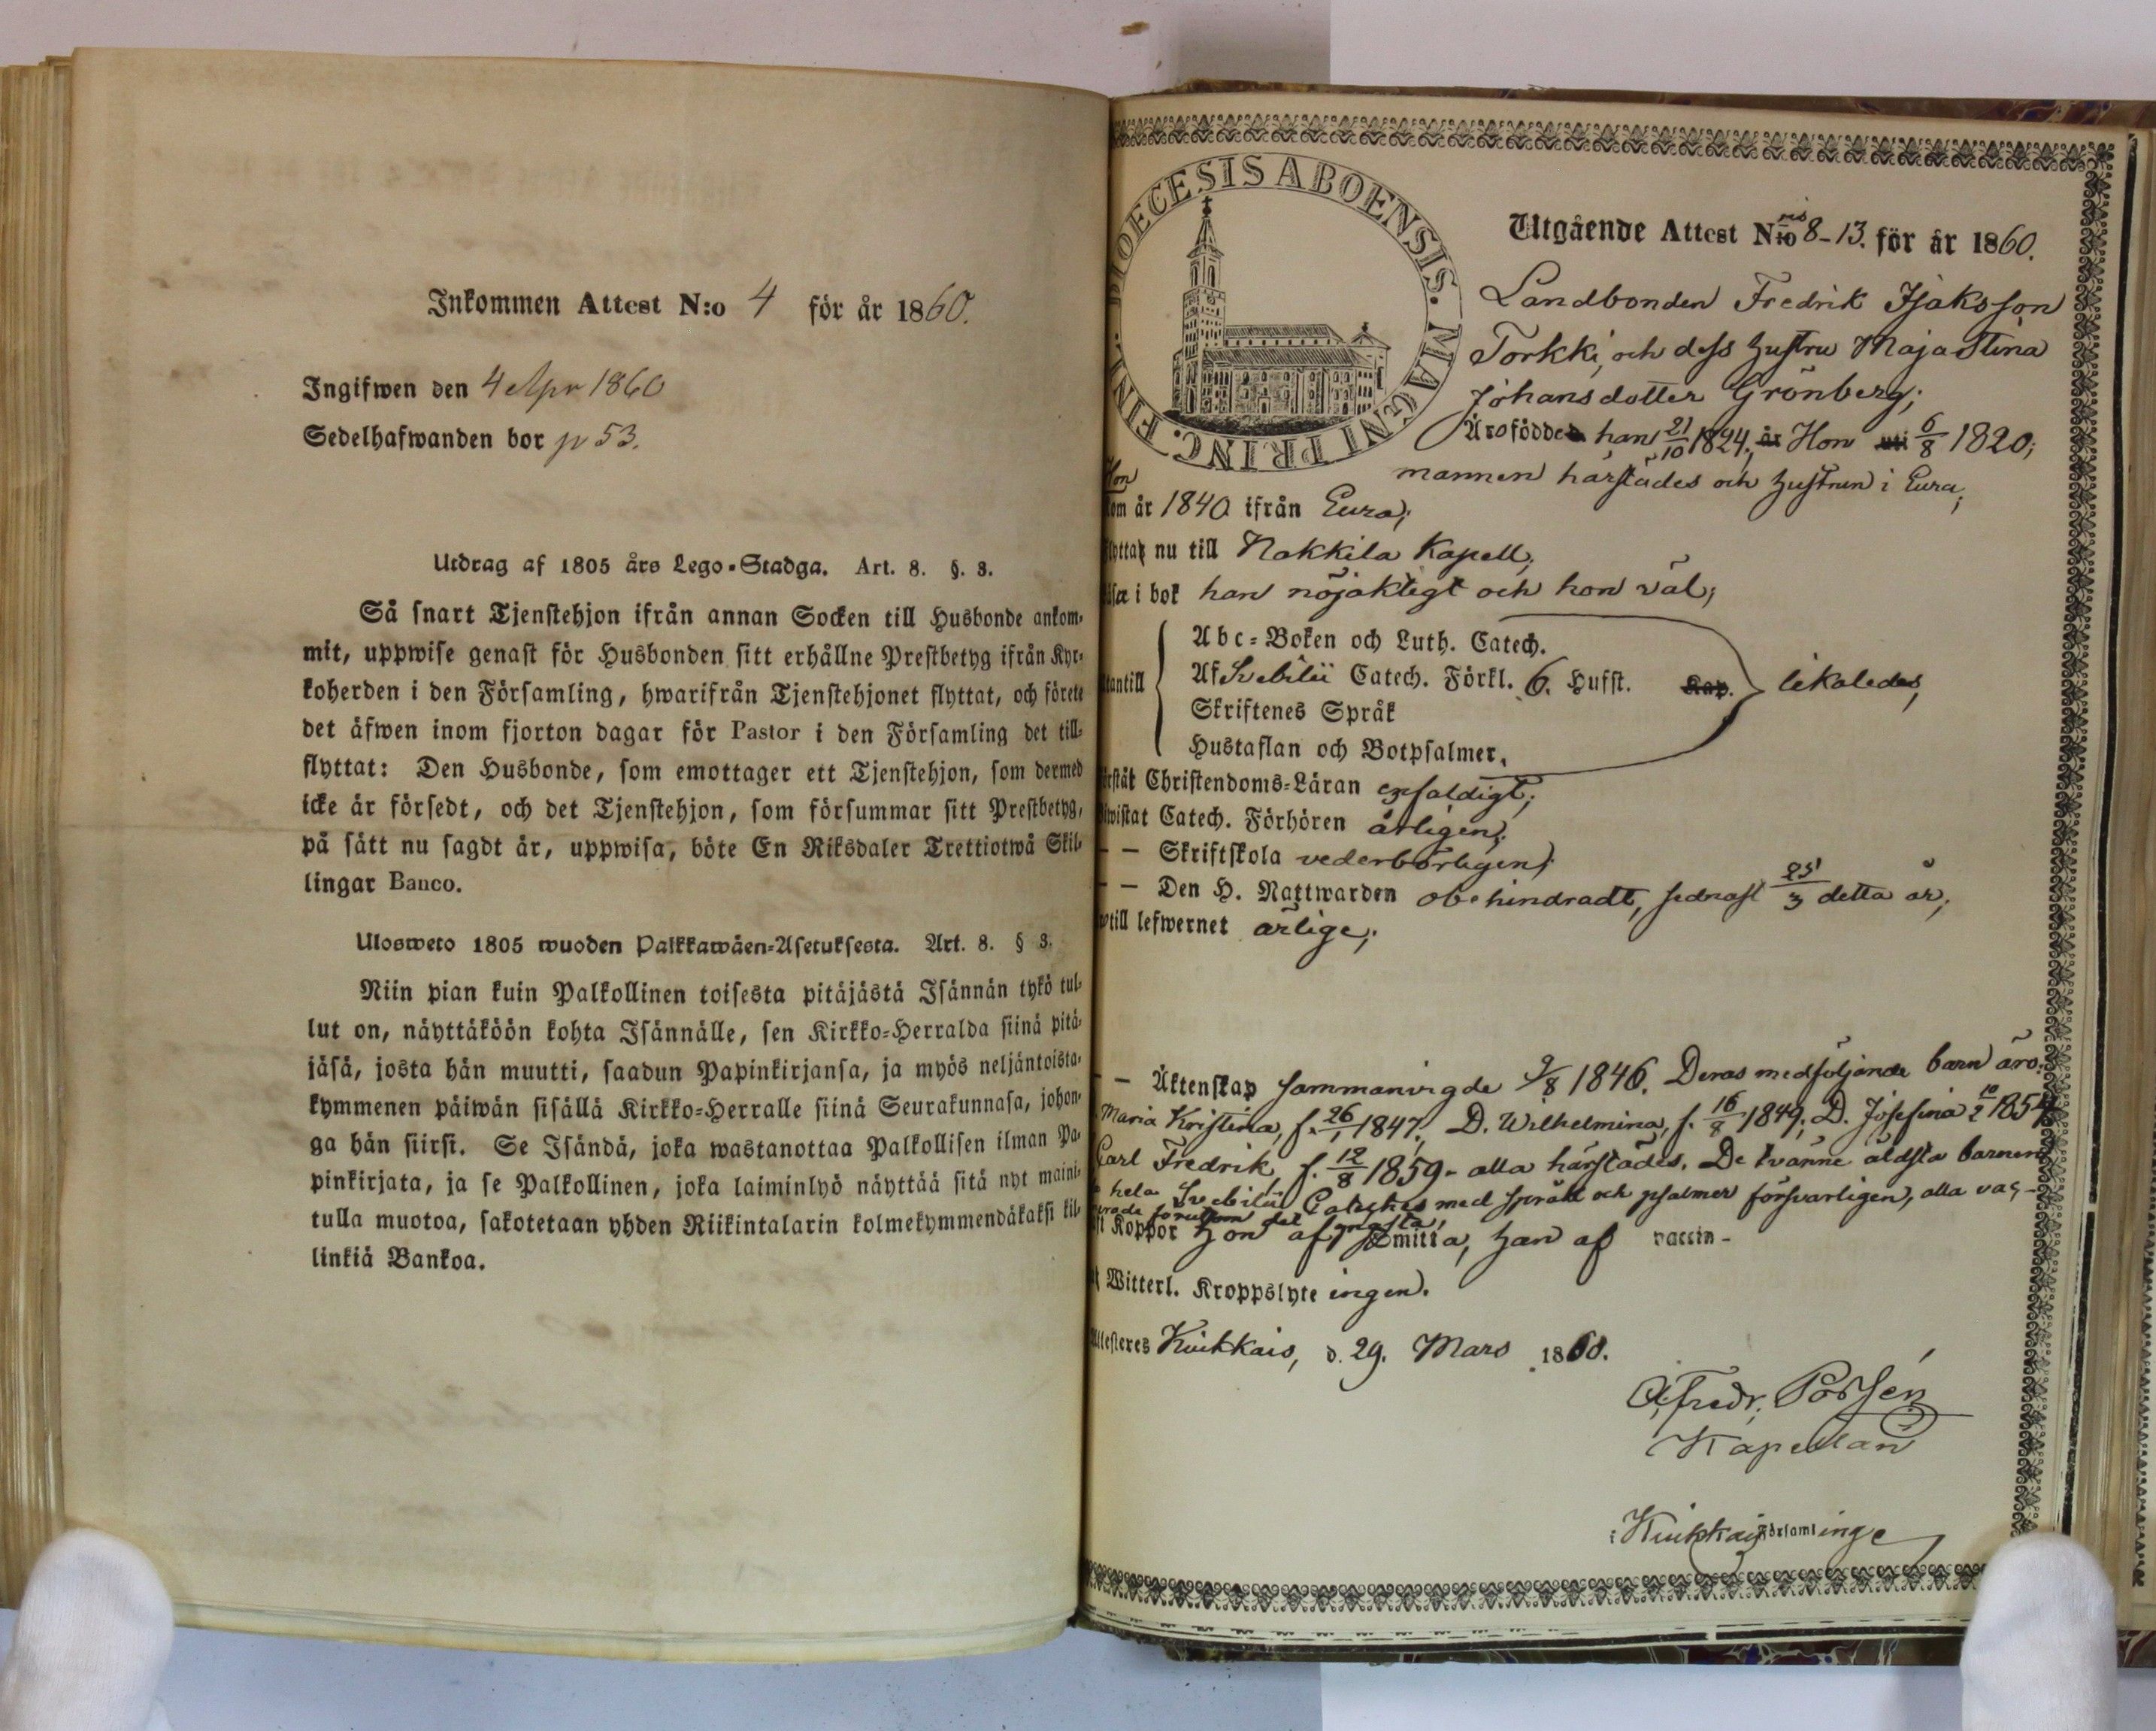 Inkommen Attest N:o 4 för år 1860.
Ingifwen den 4 Apr 1860
Sedelhafwanden bor p 53.
Utdrag af 1805 års Lego-Stadga. Art. 8. §. 3.
Så snart Tjenstehjon ifrån annan Socken till Husbonde ankom-
mit, uppwise genast för Husbonden sitt erhållne Prestbetyg ifrån Kyr-
koherden i den Församling, hwarifrån Tjenstehjonet flyttat, och förete
det äfwen inom fjorton dagar för Pastor i den Församling det till-
flyttat: Den Husbonde, som emottager ett Tjenstehjon, som dermed
icke är försedt, och det Tjenstehjon, som försummar sitt Prestbetyg,
på sätt nu sagdt är, uppwisa, böte En Riksdaler Trettiotwå Skil-
lingar Banco.
Ulosweto 1805 wuoden Palkkawäen-Asetuksesta. Art. 8. § 3.
Niin pian kuin Palkollinen toisesta pitäjästä Isännän tykö tul-
lut on, näyttäköön kohta Isännälle, sen Kirkko-Herralda siinä pitä-
jäsä, josta hän muutti, saadun Papinkirjansa, ja myös neljäntoista-
kymmenen päiwän sisällä Kirkko-Herralle siinä Seurakunnasa, johon-
ga hän siirsi. Se Isändä, joka wastanottaa Palkollisen ilman Pa-
pinkirjata, ja se Palkollinen, joka laiminlyö näyttää sitä nyt maini-
tulla muotoa, sakotetaan yhden Riikintalarin kolmekymmendäkaksi kil-
linkiä Bankoa.
DIOECESIS ABOENSIS. MAGNI PRINC. FINL.
Utgående Attest N:ris 8-13. för år 1860.
Landbonden Fredrik Isaksson
Torkki, och dess hustru Maja Stina
Johansdotter Grönberg;
Äro födde han 21/10 1824; är Hon uti 6/8 1820;
mannen härstädes och hustrun i Eura;
Hon
kom år 1840 ifrån Eura;
flyttar nu till Nakkila Kapell;
läsa i bok han nöjaktigt och hon väl;
Utantill
Abc-Boken och Luth. Catech.
Af Svebilii Catech. Förkl. 6. Hufst. Kap. likaledes;
Skriftenes Språk
Hustaflan och Botpsalmer.
förstår Christendoms-Läran enfaldigt;
biwistat Catech. Förhören årligen;
- - Skriftskola vederbörligen;
- - Den H. Nattwarden obehindradt, sednast 25/3 detta år;
till lefwernet ärlige;
- - Äktenskap sammanvigde 9/8 1846. Deras medföljande barn äro:
Maria Kristina, f. 26/1 1847; D. Wilhelmina, f. 16/8 1849; D. Josefina 10/2 1854
Carl Fredrik, f. 12/8 1859 - alla härstädes. De tvänne äldsta barnen
hela Svebilii Cateches med språk och psalmer försvarligen, alla vac-
förutom det yngsta;
Koppor hon af smitta, han af vaccin-
Witterl. Kroppslyte ingen.
Attesteres Kiukkais, d. 29. Mars 1860.
A. Fredr. Possén
Kapellan
i Kiukkais Församlinge